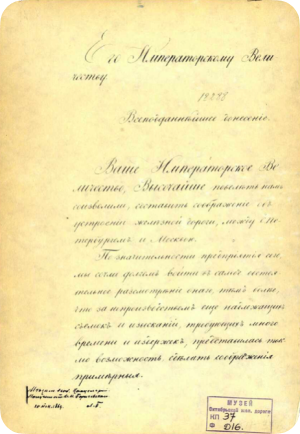 Его Императорскому Вели
честву
Всеподданнейшее донесение.
Ваше Императорское Ве
личество, Высочайше повелеть нам
соизволили, составить соображение об
устроении железной дороги, между С. Пе
тербургом и Москвою.
По значительности предприятия се
мы сочли долгом войти в самое обстоя
тельное разсмотрение онаго, так более,
что за непроизводством еще надлежащих
съемок и изысканий, требующих много
времени и издержек, представилась то
мо возможность сделать соображения
примерныя.
МУЗЕЙ
Октябрьской жел. дороги
НП 37
Ф 016.